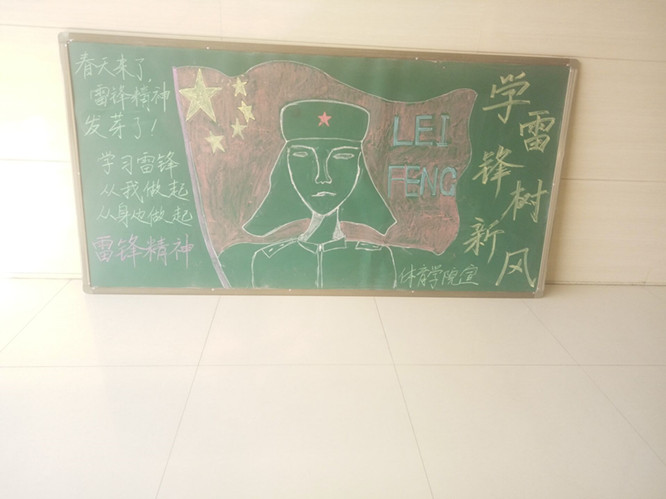 春天来了
雷锋精神
发芽了！
学习雷锋
从我做起
从身边做起
雷锋精神
LEI
FENG
学雷
锋树
新风
体育学院宣